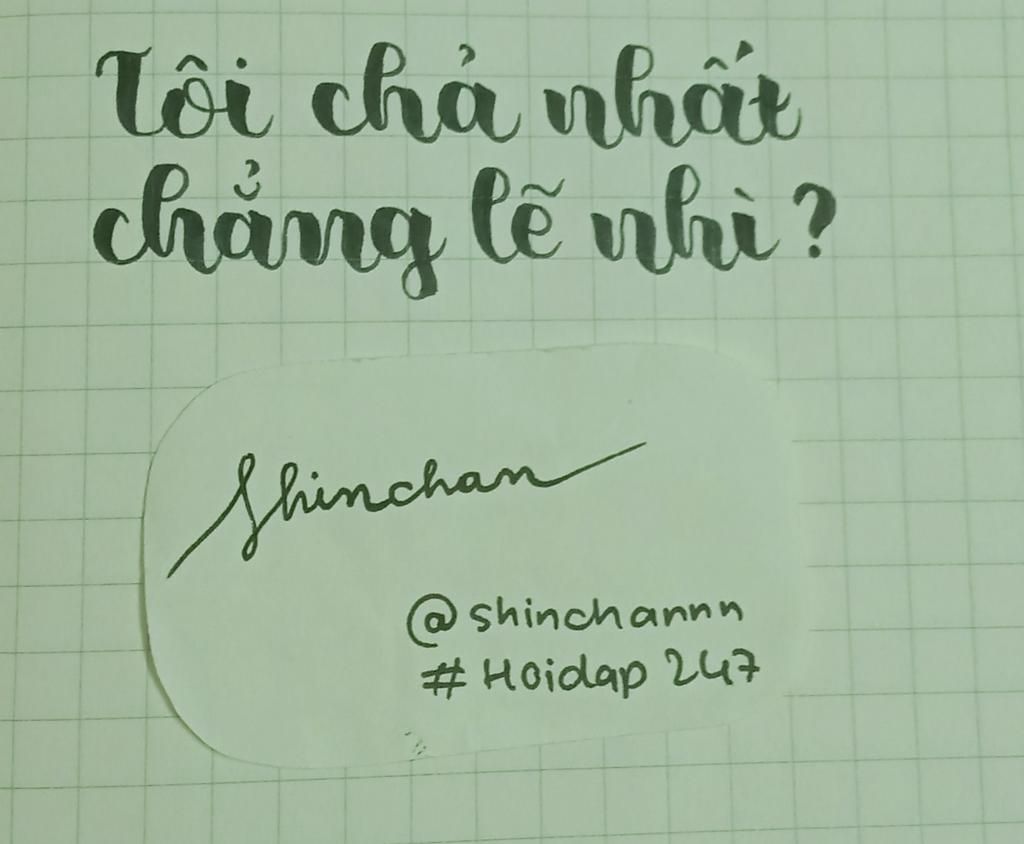 Tôi chả nhất
chẳng lẽ nhì?
Shinchan
@shinchannn
# Hoidap 247